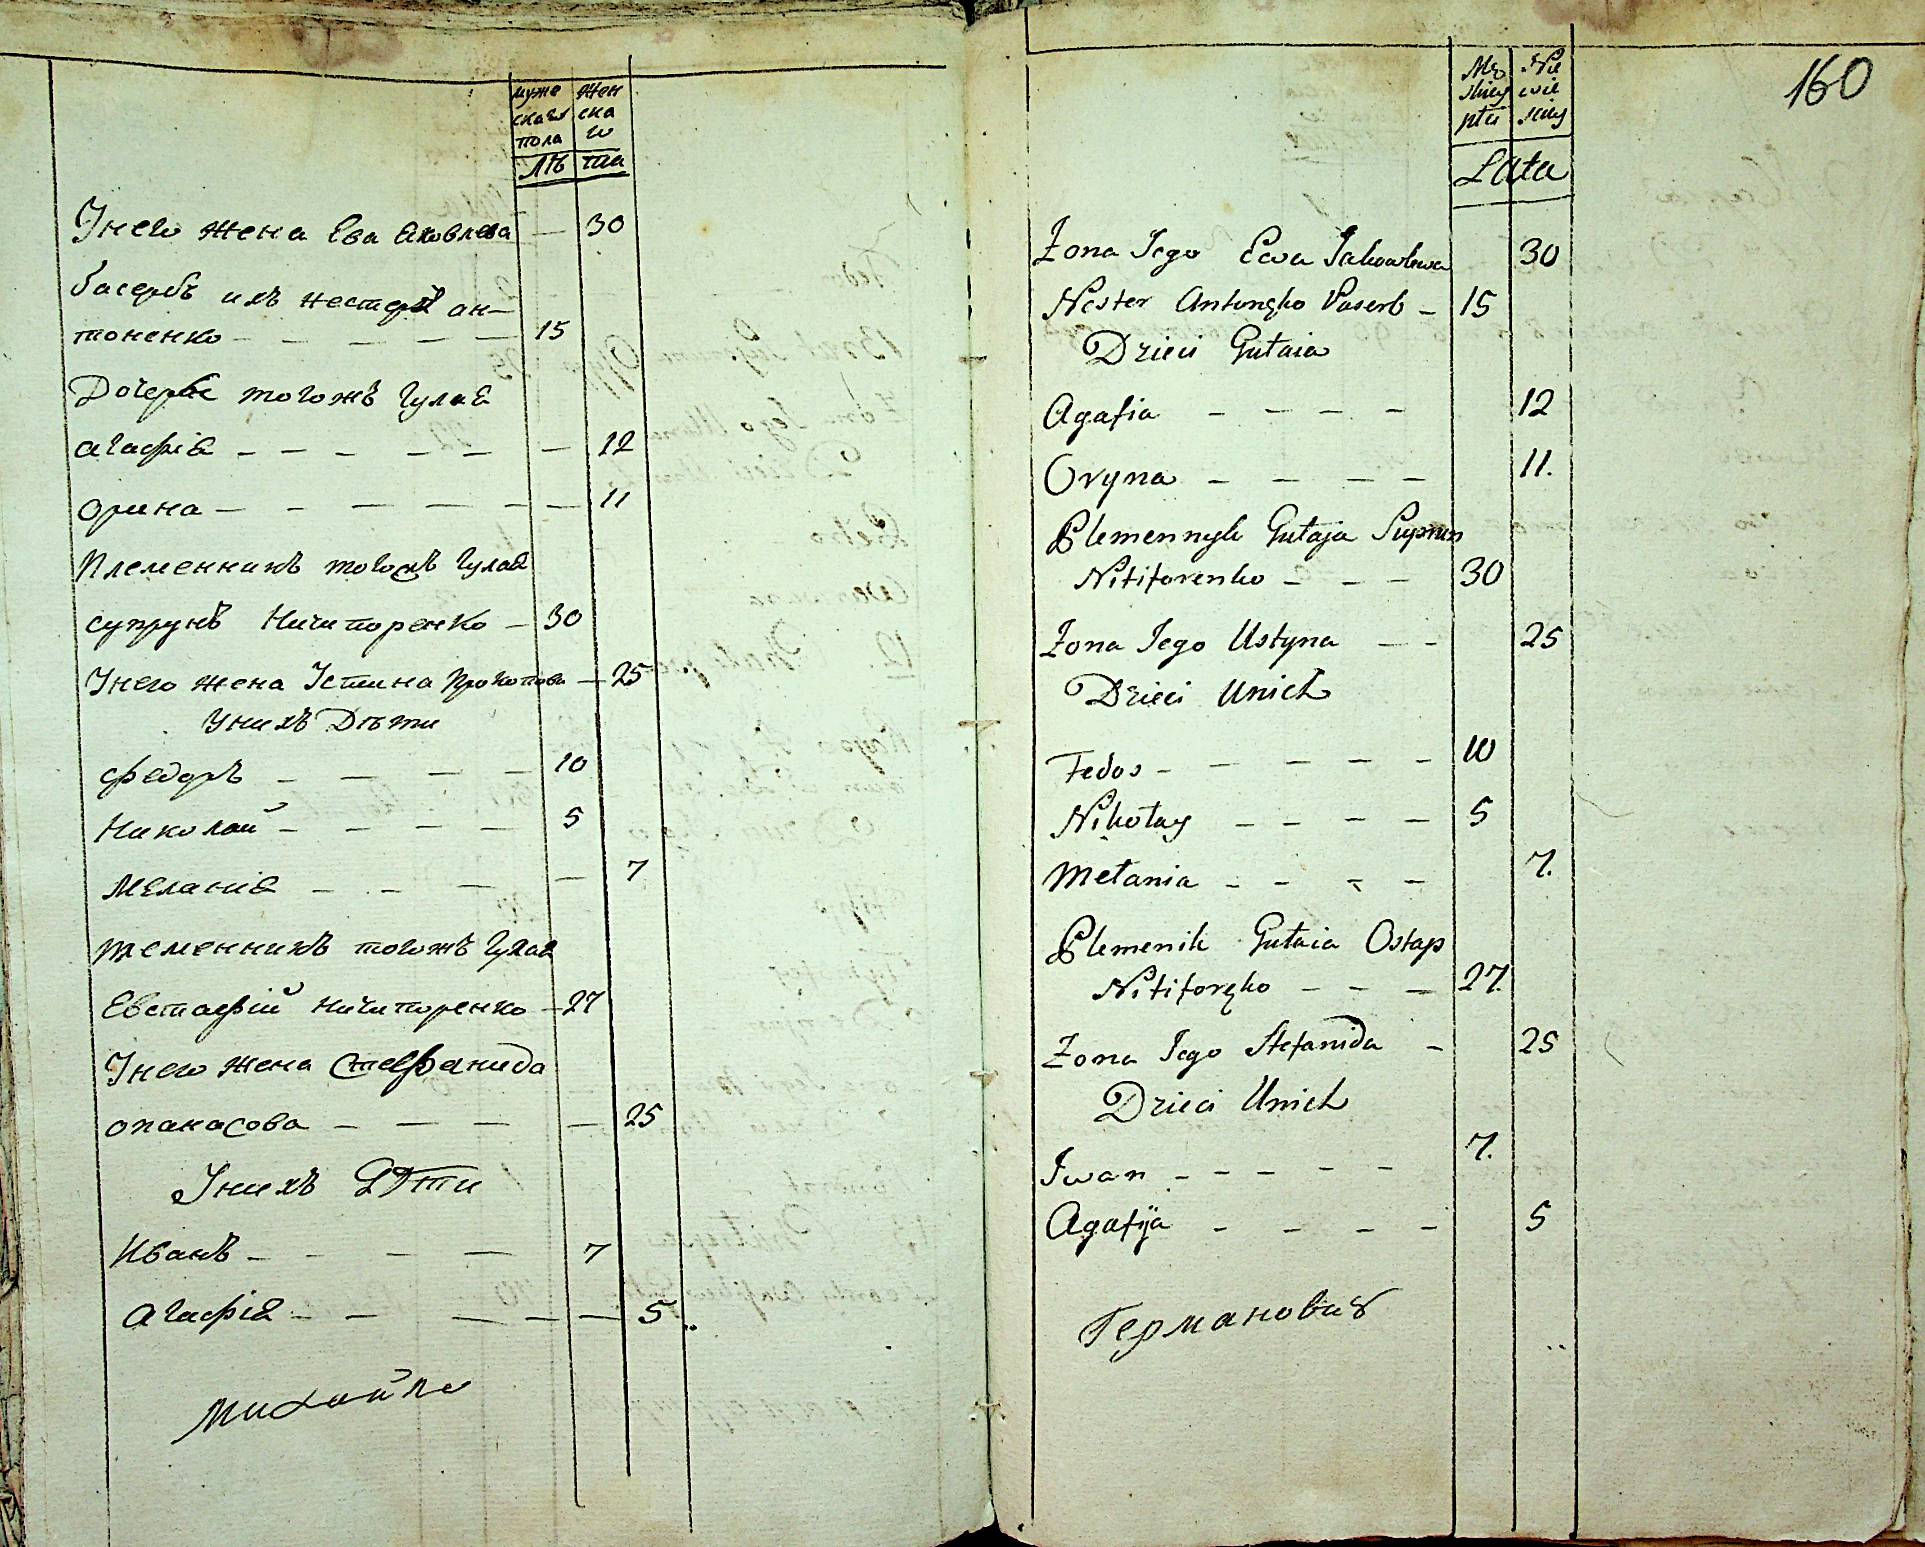 муже
скаго
пола
жен
ска
го
лѣ та
Унего жена Ева Яковлева — 30
Басербъ ихъ нестеръ ан-
тоненко — — — — — 15
Дочери тогожъ Гулая
агафія — — — — — — 12
орина — — — — — — 11
Племенникъ тогожъ Гулая
супрунъ Ничипоренко — 30
Унего жена Устина Прокопова — 25
Унихъ Дѣти
федоръ — — — — 10
Николай — — — — 5
Меланія — — — — 7
племенникъ тогожъ Гулая
Евстафій Ничипоренко — 27
Унего жена Стефанида
опанасова — — — — 25
Унихъ Дѣти
Иванъ — — — — 7
агафія — — — — — 5
михайло
160
Mę
skiey
płci
Nie
wie
sciey
Lata
Zona Iego Ewa Jakowlewa 30
Nester Antonęko Paserb — 15
Dzieci Gułaia
Agafia — — — — 12
Oryna — — — — 11.
Plemennyk Gułaja Suprun
Niti­forenko — — — 30
Zona Iego Ustyna — — 25
Dzieci Unich
Fedos — — — — — 10
Nikołay — — — — 5
Mełania — — — — 7.
Plemenik Gułaia Ostap
Nitiforęko — — — 27.
Zona Iego Stefanida — 25
Dzieci Unich
Iwan — — — — — 7.
Agafija — — — — 5
Германович